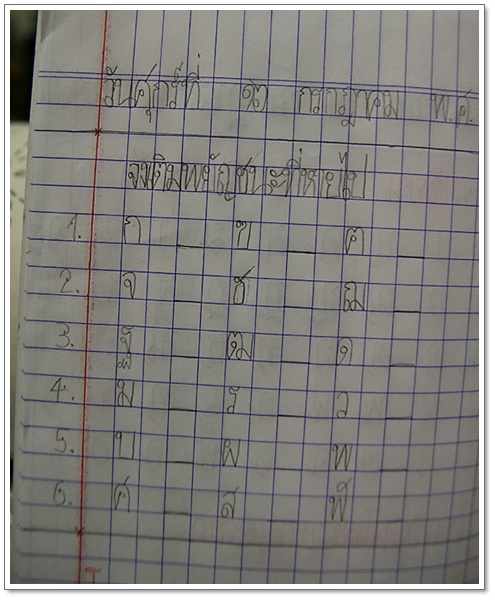 วันศุกร์ที่ ๑๖ กรกฎาคม พ.ศ.
จงเติมพยัญชนะที่หายไป
1. ก _ ฃ _ ฅ _
2. จ _ ช _ ฌ _
3. ฐ _ ฒ _ ด _
4. ม _ ร _ ว _
5. บ _ ผ _ พ _
6. ศ _ ส _ ฬ _